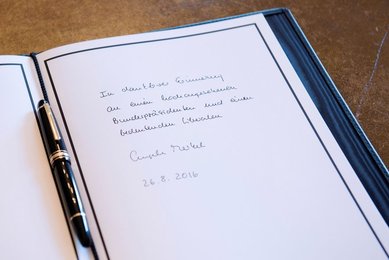 In dankbarer Erinnerung
an einen hochangesehenen
Bundespräsidenten und einen
bedeutenden Liberalen
Angela Merkel
26.8.2016